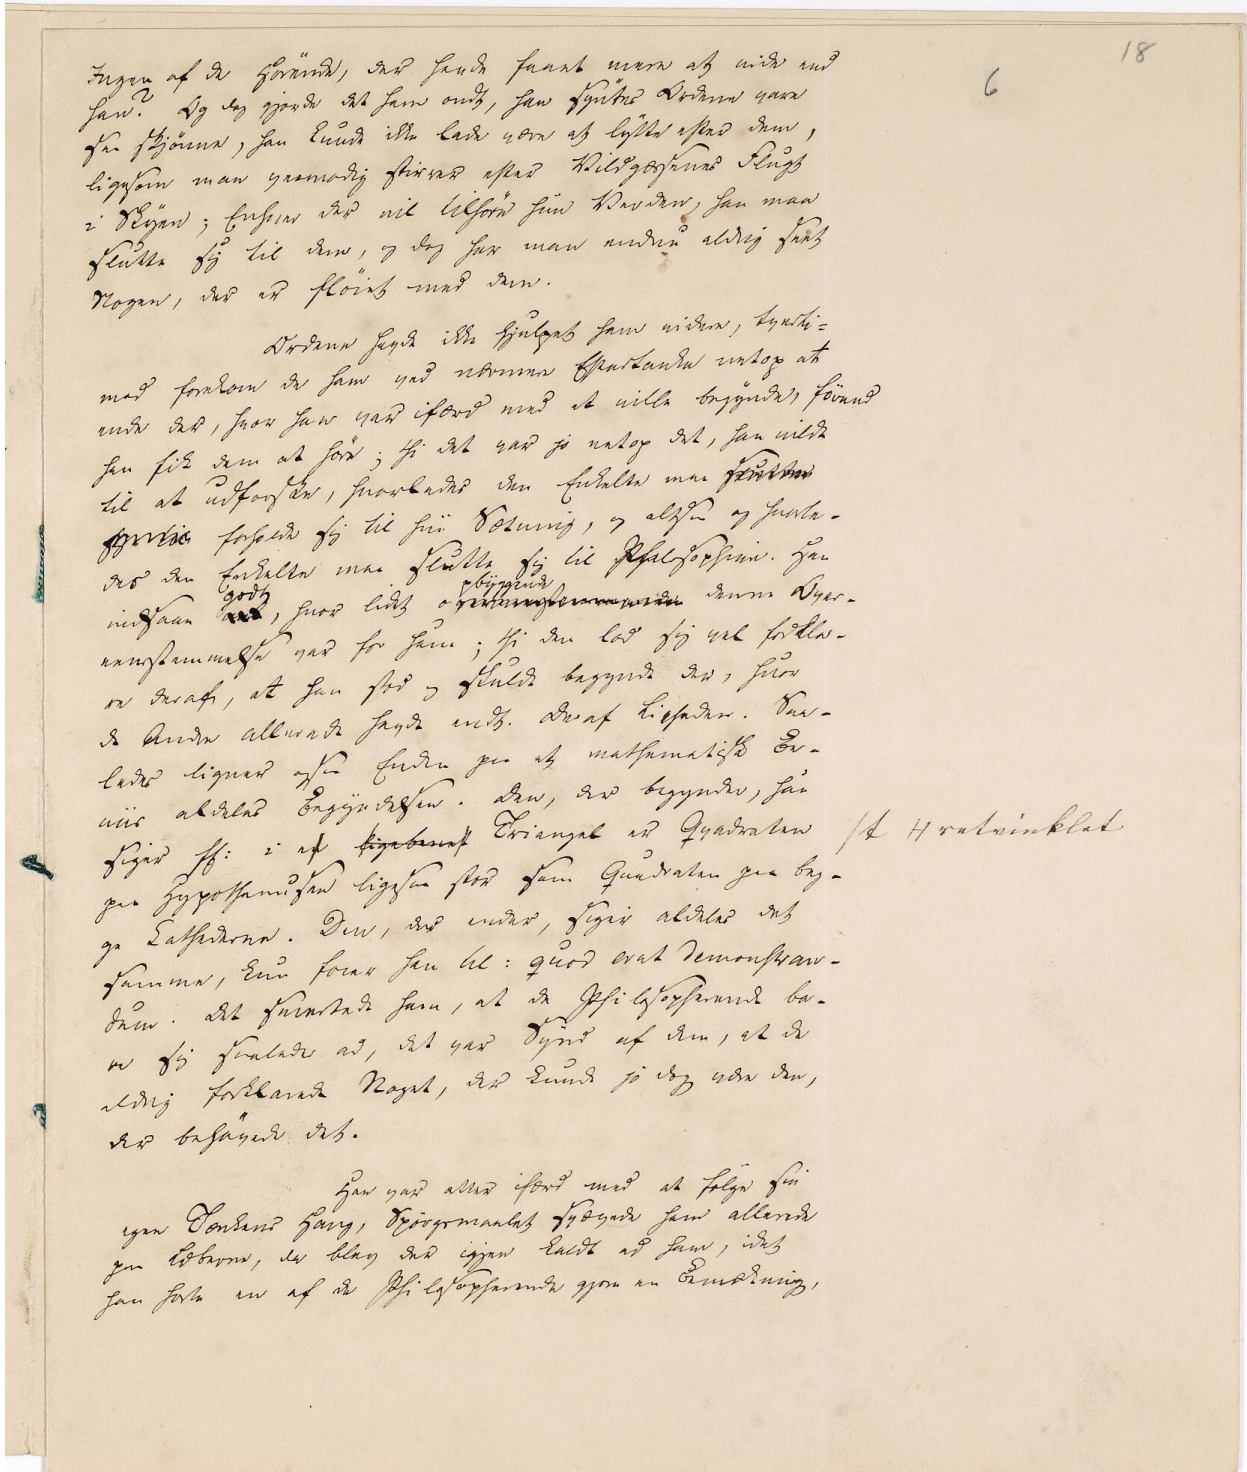 18
6
Ingen af de Hørende, der havde faaet mere at vide end
han? Og dog gjorde det ham ondt, han syntes Ordene vare
saa skjønne, han kunde ikke lade være at lytte efter dem,
ligesom man veemodig stirrer efter Vildgæssenes Flugt
i Skyen; Enhver der vil tilhøre hiin Verden, han maa
slutte sig til dem, og dog har man endnu aldrig seet
Nogen, der er fløiet med dem.
Ordene havde ikke hjulpet ham videre, tverti-
mod forekom de ham ved nærmere Eftertanke netop at
ende der, hvor han var ifærd med at ville begynde, førend
han fik dem at høre; thi det var jo netop det, han vilde
til at udforske, hvorledes den Enkelte maa slutte
forholde sig til hiin Sætning, og altsaa og hvorle-
des den Enkelte maa slutte sig til Philosophien. Han
indsaae godt, hvor lidet opbyggende denne Over-
eensstemmelse var for ham; thi den lod sig vel forkla-
re deraf, at han stod og skulde begynde der, hvor
de Andre allerede havde endt. Deraf Ligheden. Saa-
ledes ligner ogsaa Enden paa et mathematisk Be-
viis aldeles Begyndelsen. Den, der begynder, han
siger ff: i et ligebenet Triangel er Qvadraten
/t H retvinklet
paa Hypothenusen ligesaa stor som Quadraten paa beg-
ge Catheterne. Den, der ender, siger aldeles det
samme, kun føier han til: quod erat demonstran-
dum. Det smertede ham, at de Philosopherende ba-
re sig saaledes ad, det var Synd af dem, at de
aldrig forklarede Noget, der kunde jo dog være den,
der behøvede det.
Han var atter ifærd med at følge sin
egen Tænkens Hang, Spørgsmaalet svævede ham allerede
paa Læberne, da blev der igjen kaldt ad ham, idet
han hørte en af de Philosopherende gjøre en Bemærkning,